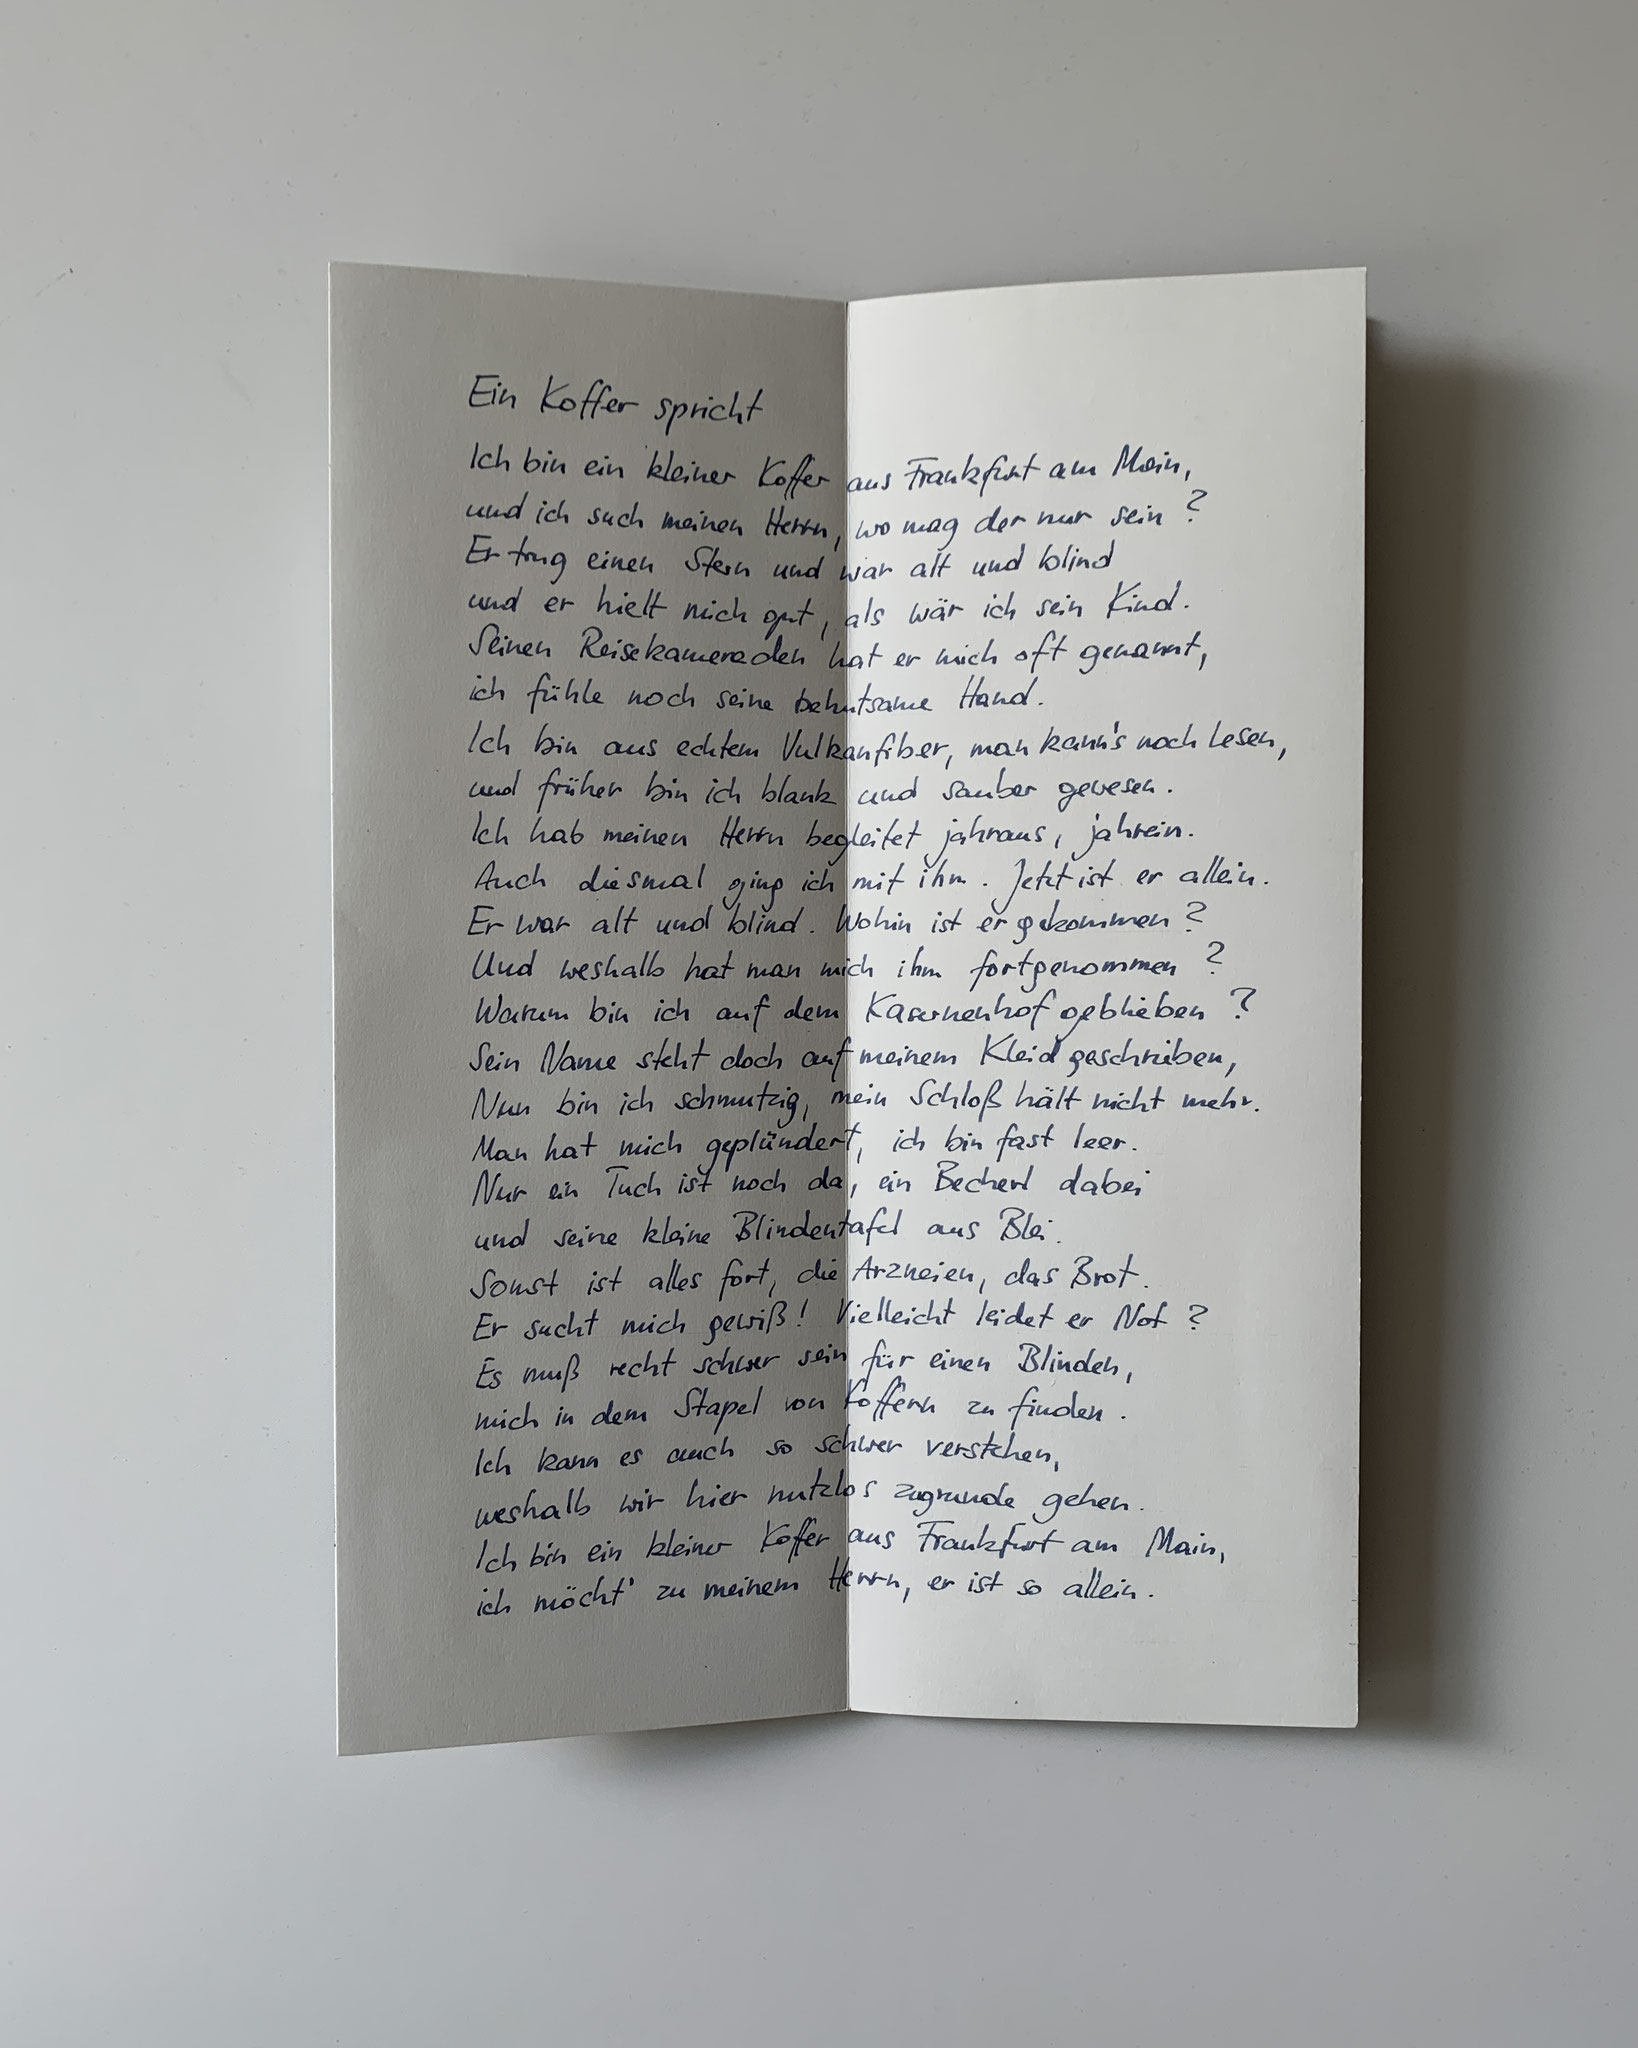 Ein Koffer spricht
Ich bin ein kleiner Koffer aus Frankfurt am Main,
und ich such meinen Herrn, wo mag der nur sein?
Er trug einen Stern und war alt und blind
und er hielt mich gut, als wär ich sein Kind.
Seinen Reisekameraden hat er mich oft genannt,
ich fühle noch seine behutsame Hand.
Ich bin aus echtem Vulkanfiber, man kann's noch lesen,
und früher bin ich blank und sauber gewesen.
Ich hab meinen Herrn begleitet jahraus, jahrein.
Auch diesmal ging ich mit ihm. Jetzt ist er allein.
Er war alt und blind. Wohin ist er gekommen?
Und weshalb hat man mich ihm fortgenommen?
Warum bin ich auf dem Kasernenhof geblieben?
Sein Name steht doch auf meinem Kleid geschrieben,
Nun bin ich schmutzig, mein Schloß hält nicht mehr.
Man hat mich geplündert, ich bin fast leer.
Nur ein Tuch ist noch da, ein Becherl dabei
und seine kleine Blindentafel aus Blei.
Sonst ist alles fort, die Arzneien, das Brot.
Er sucht mich gewiß! Vielleicht leidet er Not?
Es muß recht schwer sein für einen Blinden,
mich in dem Stapel von Koffern zu finden.
Ich kann es auch so schwer verstehen,
weshalb wir hier nutzlos zugrunde gehen.
Ich bin ein kleiner Koffer aus Frankfurt am Main,
ich möcht' zu meinem Herrn, er ist so allein.